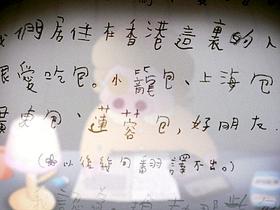 我們居住在香港這裏的人
很愛吃包。小籠包、上海包
廣東包、蓮蓉包，好朋友
以後 包翻譯不出。)